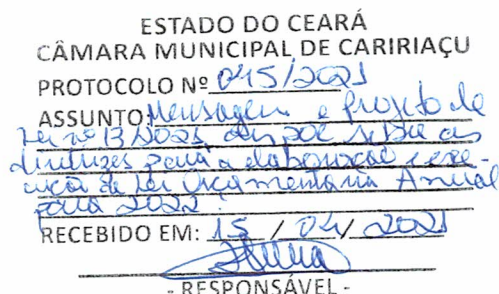 ESTADO DO CEARÁ
CÂMARA MUNICIPAL DE CARIRIAÇU
PROTOCOLO Nº 045/2021
ASSUNTO: Mensagem e Projeto de
Lei nº 13/2021 dispõe sobre as
diretrizes para a elaboração e exe-
cução da Lei Orçamentária Anual
para 2022.
RECEBIDO EM: 15 / 04 / 2021
- RESPONSÁVEL -